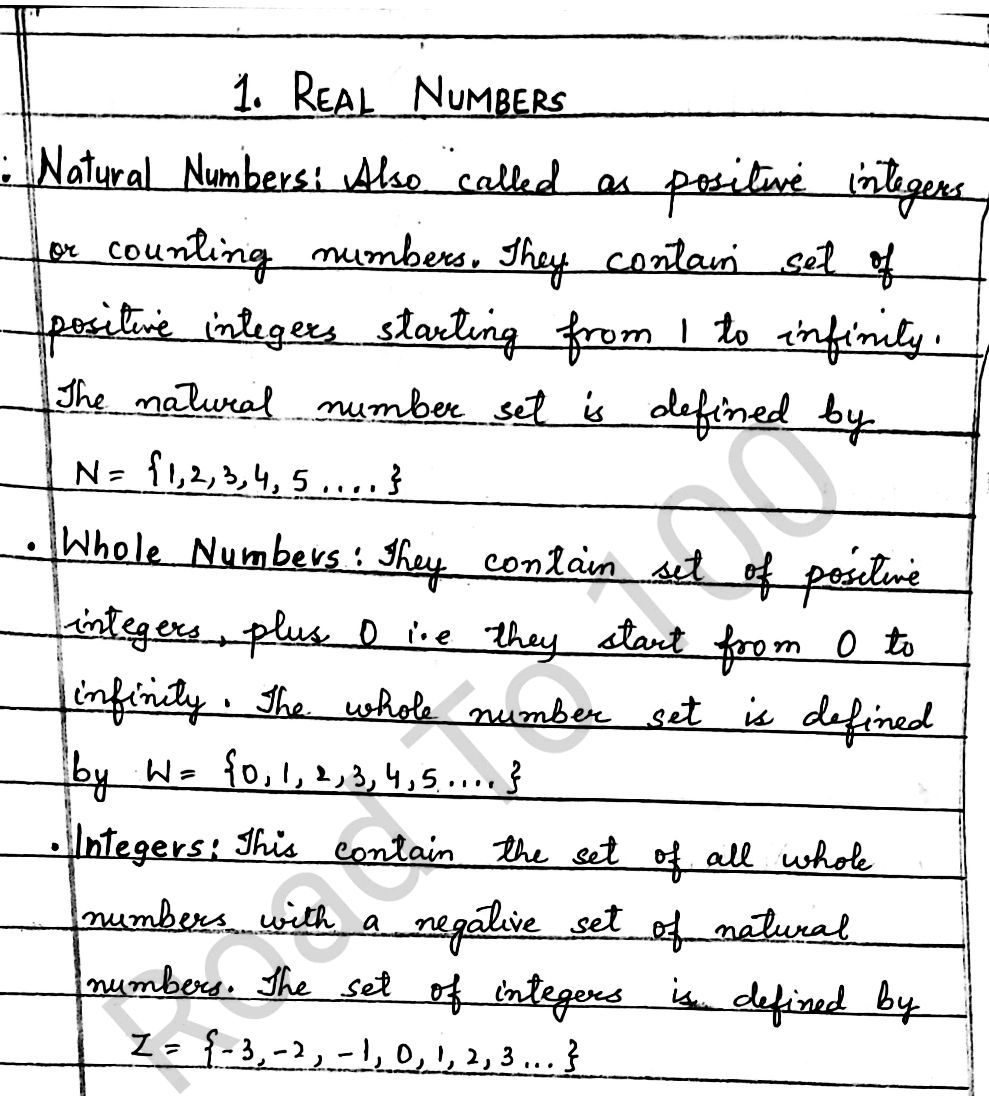 1. REAL NUMBERS
Natural Numbers: Also called as positive integers
or counting numbers. They contain set of
positive integers starting from 1 to infinity.
The natural number set is defined by
N = {1,2,3,4, 5 ....}
• Whole Numbers: They contain set of positive
integers, plus 0 i.e they start from 0 to
infinity. The whole number set is defined
by W = {0,1,2,3,4,5.....}
• Integers: This contain the set of all whole
numbers with a negative set of natural
numbers. The set of integers is defined by
Z = {-3,-2,-1,0,1,2,3...}
Road To 100